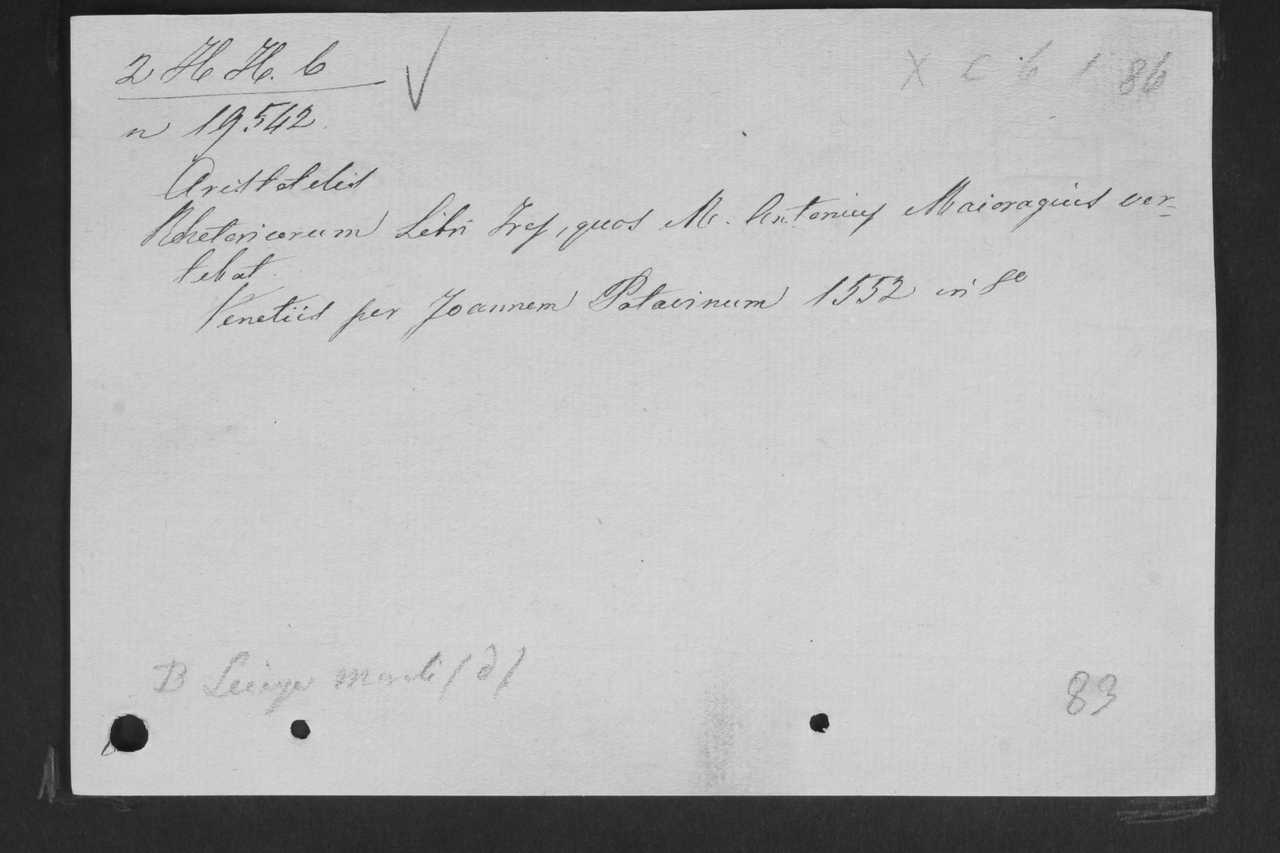 2 H H. 6
X C 6 1 86
n 19.542
Aristotelis
Rhetoricorum Libri Tres, quos M. Antonius Maioragius ver=
tebat.
Venetiis per Joannem Patavinum 1552 in 8o
B
83